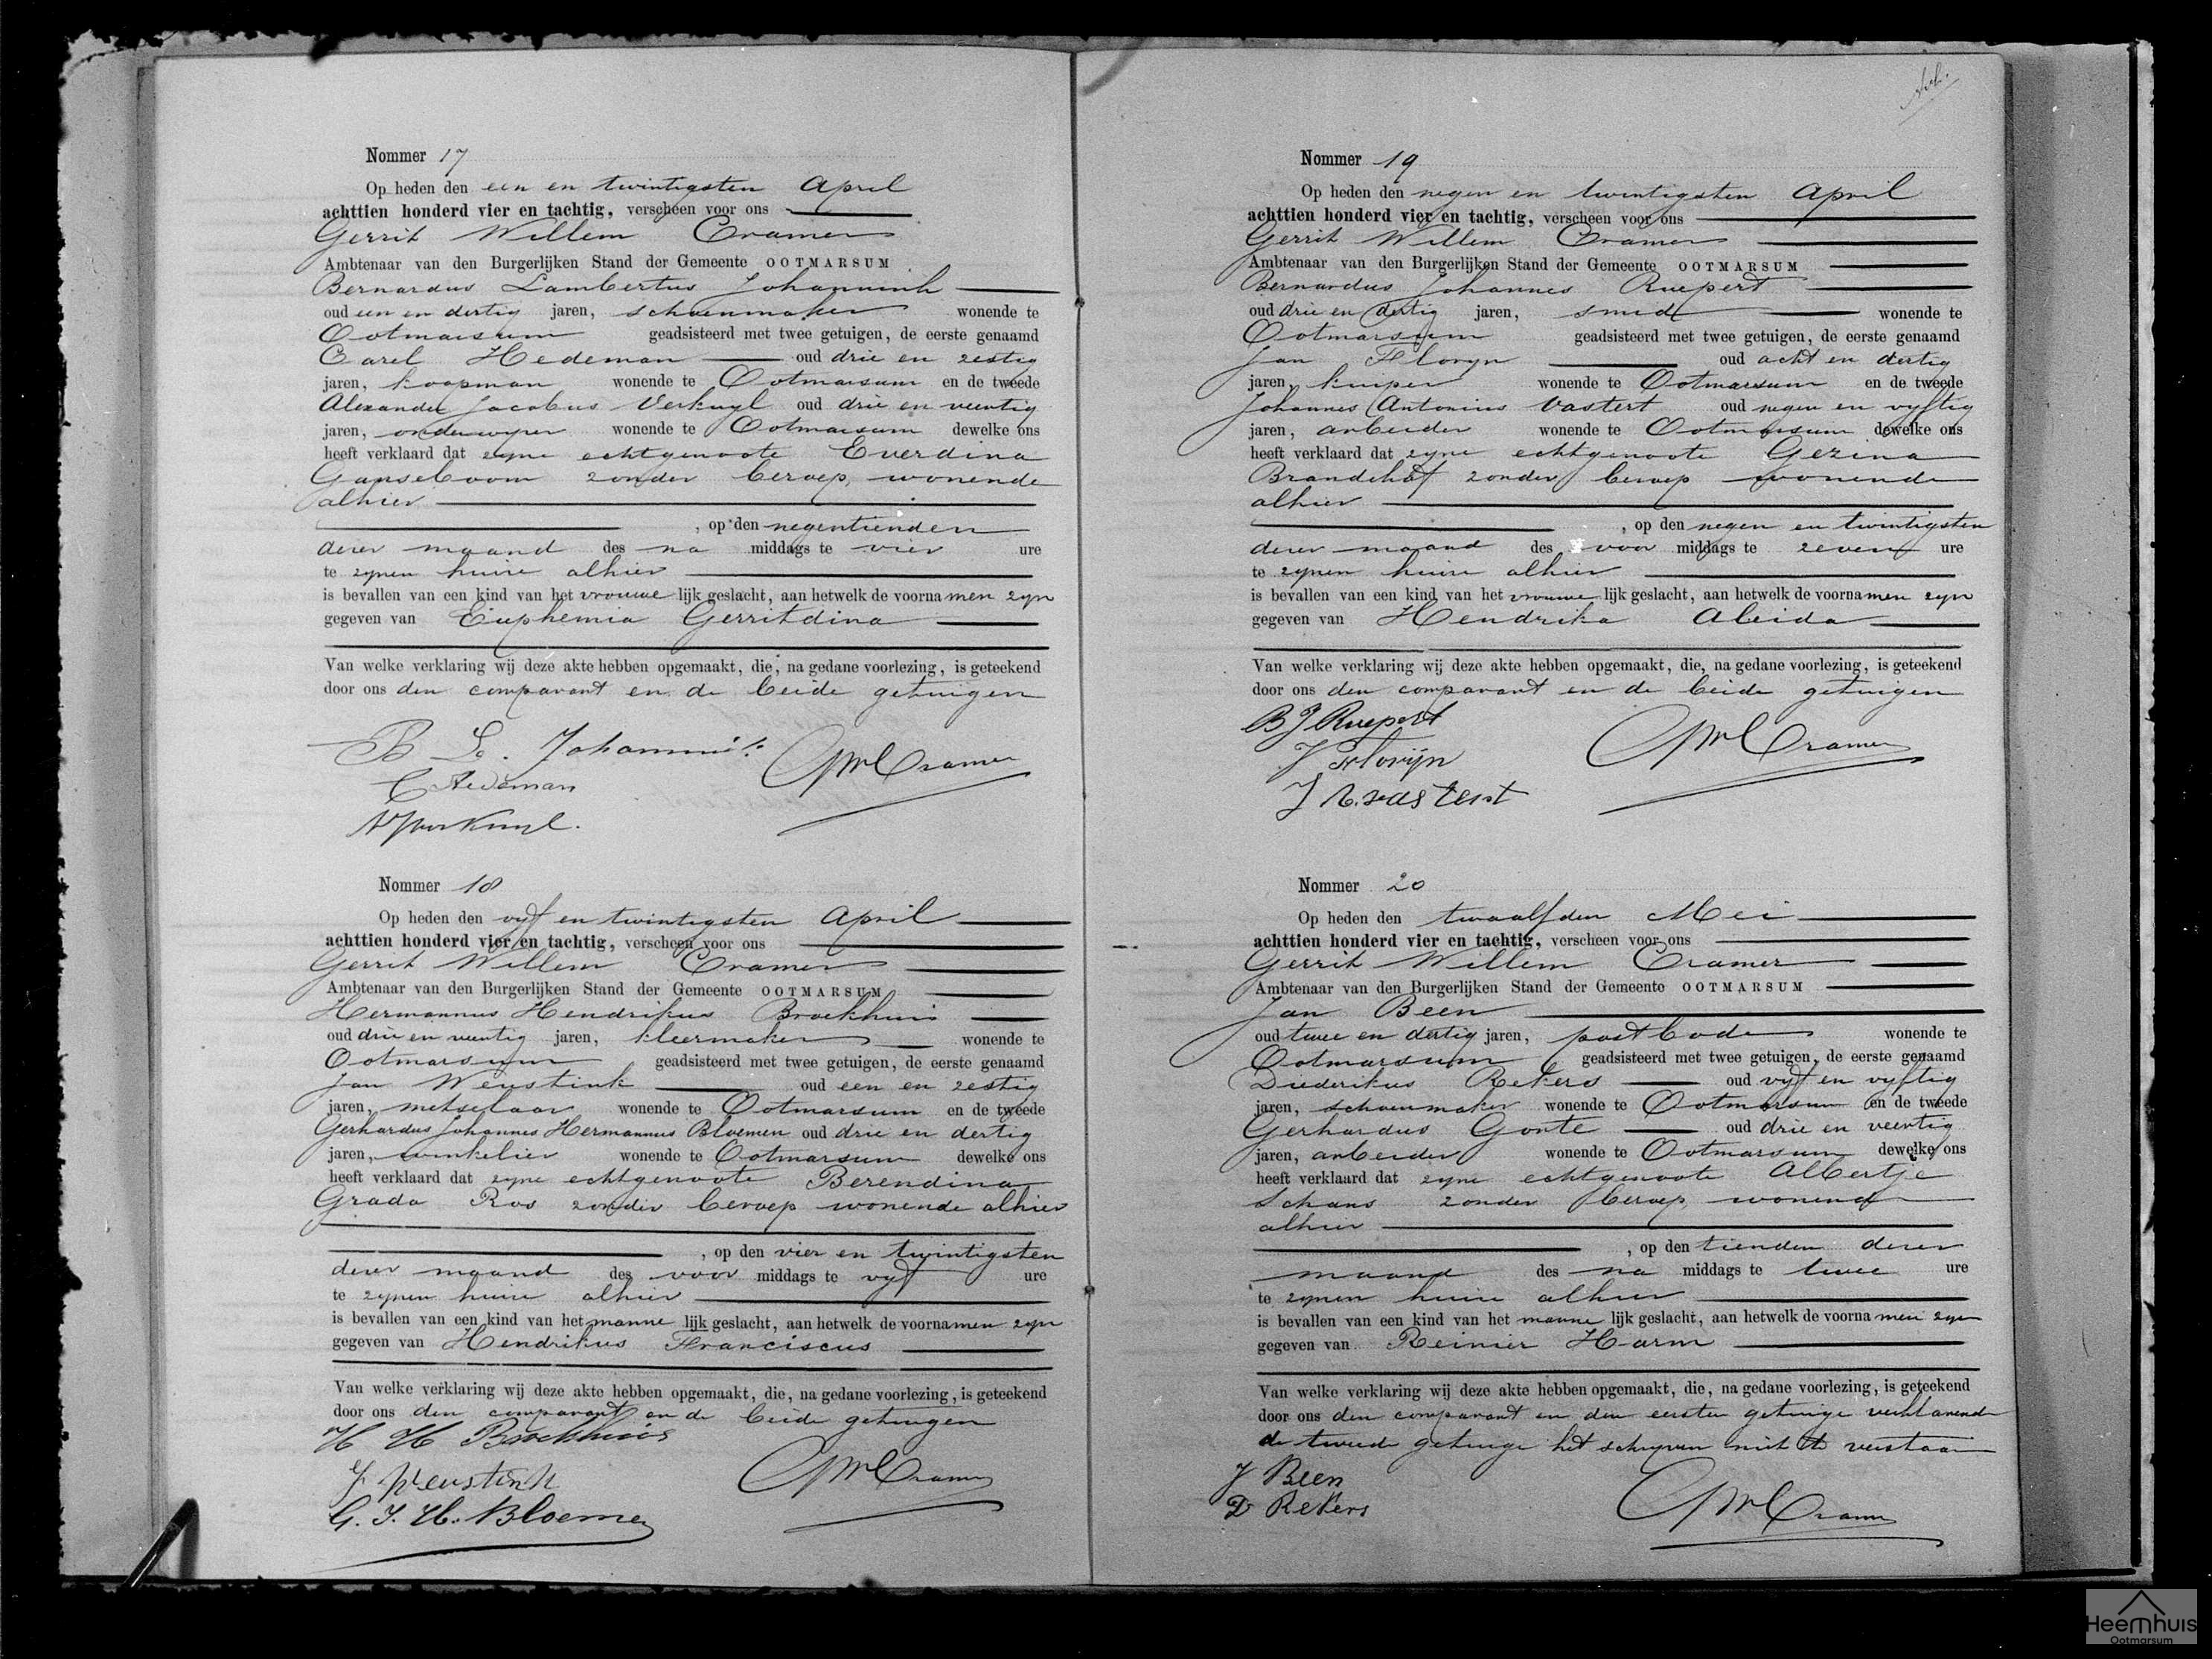 Nommer 17
Op heden den een en twintigsten April
achttien honderd vier en tachtig, verscheen voor ons
Gerrit Willem Cramer
Ambtenaar van den Burgerlijken Stand der Gemeente OOTMARSUM
Bernardus Lambertus Johannink
oud een en dertig jaren, schoenmaker wonende te
Ootmarsum geadsisteerd met twee getuigen, de eerste genaamd
Carel Hedeman oud drie en zestig
jaren, koopman wonende te Ootmarsum en de tweede
Alexander Jacobus Verkuyl oud drie en veertig
jaren, onderwyzer wonende te Ootmarsum dewelke ons
heeft verklaard dat zyne echtgenoote Everdina
Ganseboom zonder beroep, wonende
alhier
, op den negentienden
dezer maand des na middags te vier ure
te zynen huize alhier
is bevallen van een kind van het vrouwe lijk geslacht, aan hetwelk de voorna men zyn
gegeven van Euphemia Gerritdina
Van welke verklaring wij deze akte hebben opgemaakt, die, na gedane voorlezing, is geteekend
door ons den comparant en de beide getuigen
B L. Johannink
GWCramer
C Hedeman
AJVerkuyl.
Nommer 18
Op heden den vyf en twintigsten April
achttien honderd vier en tachtig, verscheen voor ons
Gerrit Willem Cramer
Ambtenaar van den Burgerlijken Stand der Gemeente OOTMARSUM
Hermannus Hendrikus Broekhuis
oud drie en veertig jaren, kleermaker wonende te
Ootmarsum geadsisteerd met twee getuigen, de eerste genaamd
Jan Weustink oud een en zestig
jaren, metselaar wonende te Ootmarsum en de tweede
Gerhardus Johannes Hermannus Bloemen oud drie en dertig
jaren, winkelier wonende te Ootmarsum dewelke ons
heeft verklaard dat zyne echtgenoote Berendina
Grada Ros zonder beroep wonende alhier
, op den vier en twintigsten
dezer maand des voor middags te vyf ure
te zynen huize alhier
is bevallen van een kind van het manne lijk geslacht, aan hetwelk de voornamen zyn
gegeven van Hendrikus Franciscus
Van welke verklaring wij deze akte hebben opgemaakt, die, na gedane voorlezing, is geteekend
door ons den comparant en de beide getuigen
H H Broekhuis
J Weustink
GWCramer
G. J. H. Bloemen
Nommer 19
Op heden den negen en twintigsten April
achttien honderd vier en tachtig, verscheen voor ons
Gerrit Willem Cramer
Ambtenaar van den Burgerlijken Stand der Gemeente OOTMARSUM
Bernardus Johannes Ruepert
oud drie en dertig jaren, smid wonende te
Ootmarsum geadsisteerd met twee getuigen, de eerste genaamd
Jan Floryn oud acht en dertig
jaren, kuiper wonende te Ootmarsum en de tweede
Johannes Antonius Vastert oud negen en vyftig
jaren, arbeider wonende te Ootmarsum dewelke ons
heeft verklaard dat zyne echtgenoote Gezina
Brandehof zonder beroep wonende
alhier
, op den negen en twintigsten
dezer maand des voor middags te zeven ure
te zynen huize alhier
is bevallen van een kind van het vrouwe lijk geslacht, aan hetwelk de voorna men zyn
gegeven van Hendrika Aleida
Van welke verklaring wij deze akte hebben opgemaakt, die, na gedane voorlezing, is geteekend
door ons den comparant en de beide getuigen
B J Ruepert
GWCramer
J Florijn
J A. vastert
Nommer 20
Op heden den twaalfden Mei
achttien honderd vier en tachtig, verscheen voor ons
Gerrit Willem Cramer
Ambtenaar van den Burgerlijken Stand der Gemeente OOTMARSUM
Jan Been
oud twee en dertig jaren, postbode wonende te
Ootmarsum geadsisteerd met twee getuigen, de eerste genaamd
Diederikus Rekers oud vyf en vyftig
jaren, schoenmaker wonende te Ootmarsum en de tweede
Gerhardus Gonte oud drie en veertig
jaren, arbeider wonende te Ootmarsum dewelke ons
heeft verklaard dat zyne echtgenoote Albertje
Schans zonder beroep, wonend
alhier
, op den tienden dezer
maand des na middags te twee ure
te zynen huize alhier
is bevallen van een kind van het manne lijk geslacht, aan hetwelk de voorna men zyn
gegeven van Reinier Harm
Van welke verklaring wij deze akte hebben opgemaakt, die, na gedane voorlezing, is geteekend
door ons den comparant en den eersten getuige verklarende
de tweede getuige het schryven niet te verstaan
J Been
D Rekers
GWCramer
Heemhuis
Ootmarsum